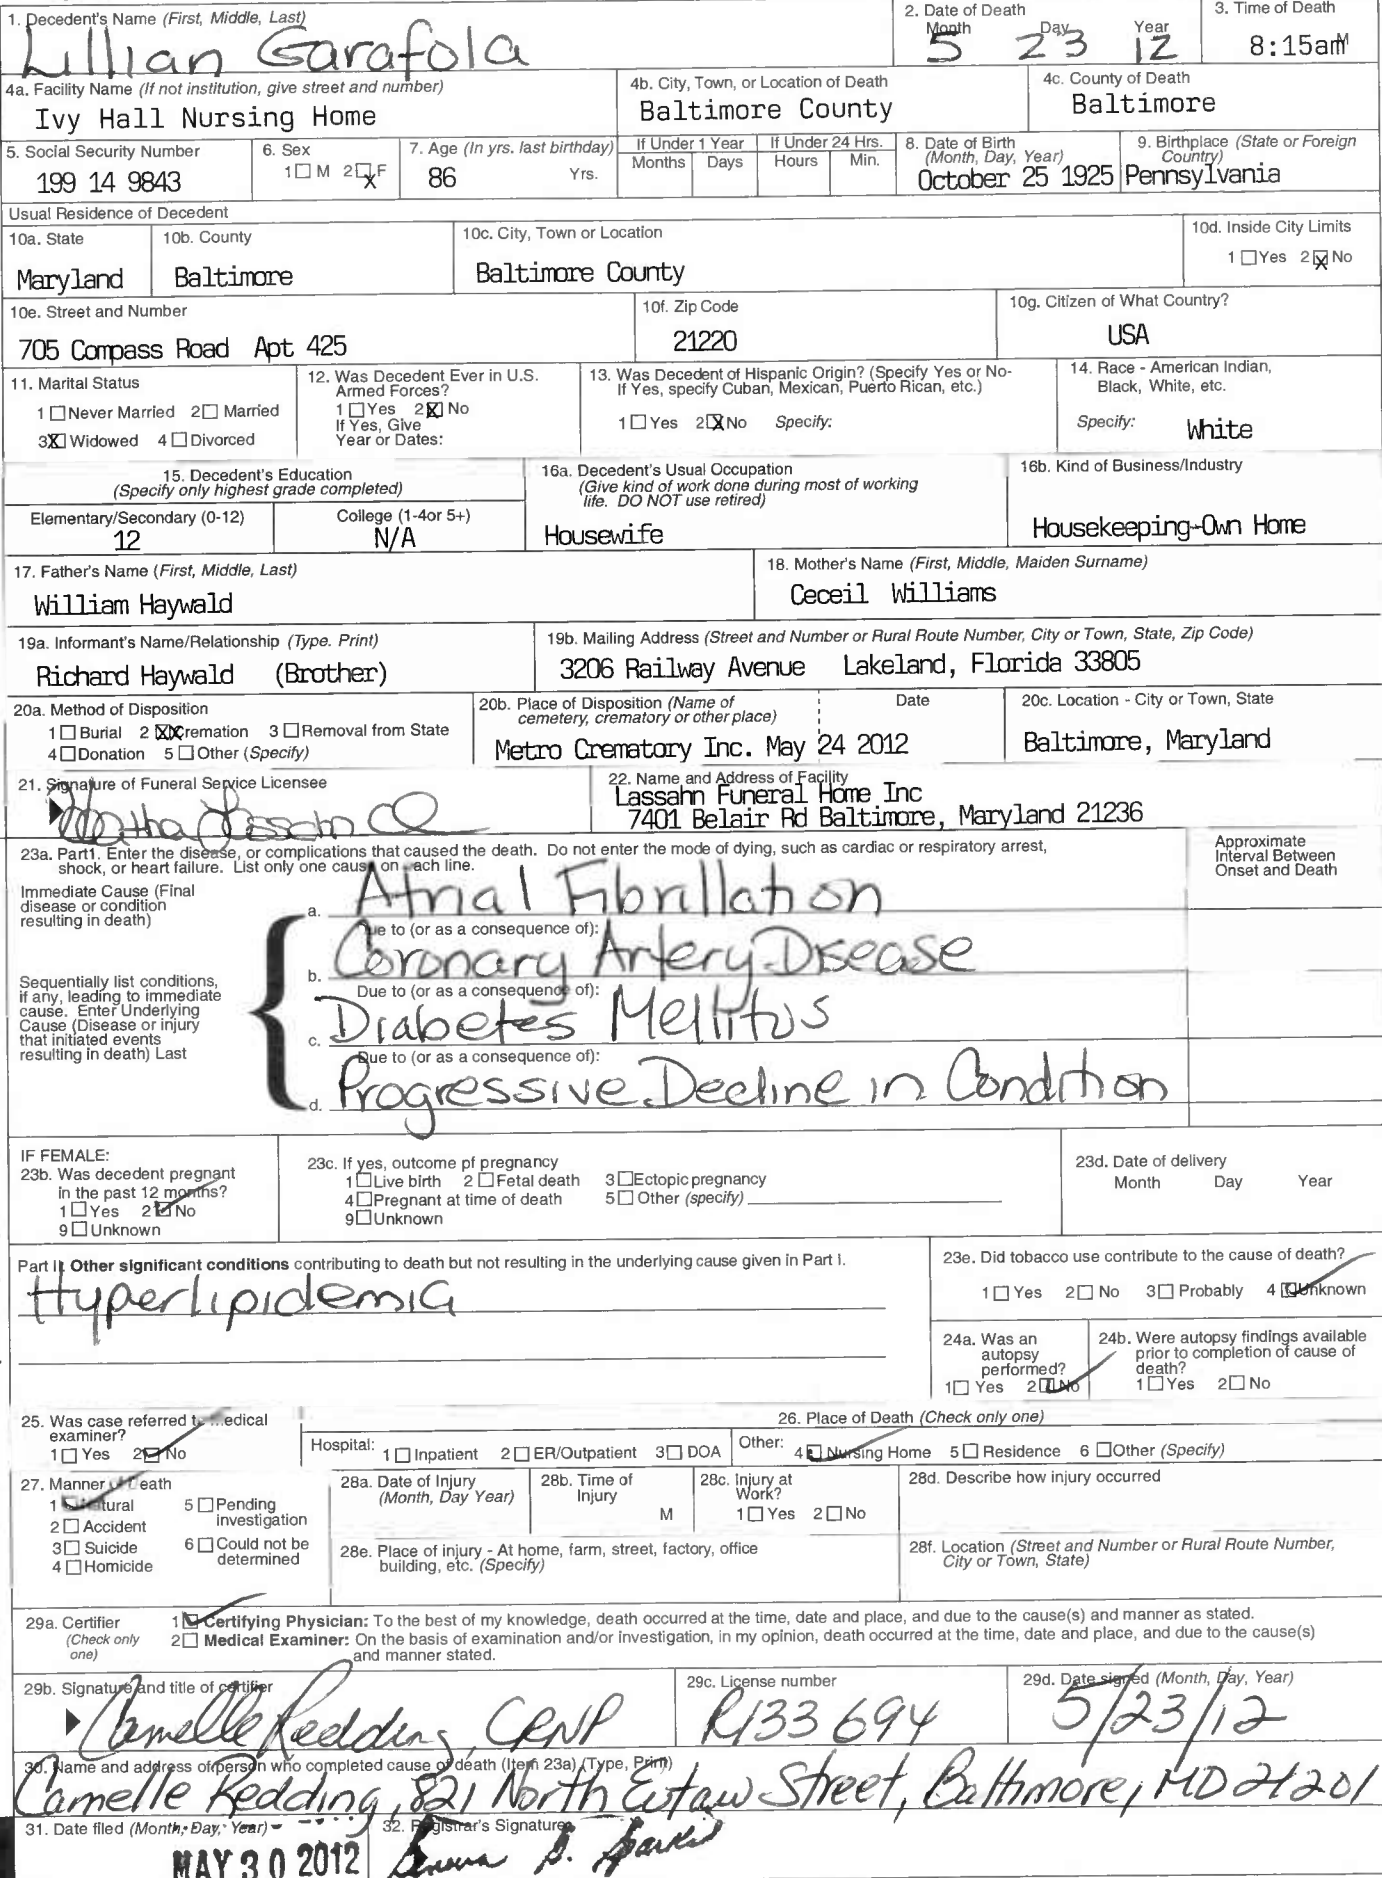 1. Decedent's Name (First, Middle, Last)
Lillian Garafola
2. Date of Death
Month Day Year
5 23 12
3. Time of Death
8:15am M
4a. Facility Name (If not institution, give street and number)
Ivy Hall Nursing Home
4b. City, Town, or Location of Death
Baltimore County
4c. County of Death
Baltimore
5. Social Security Number
199 14 9843
6. Sex
1☐ M 2☒ F
7. Age (In yrs. last birthday)
86 Yrs.
If Under 1 Year
Months Days
If Under 24 Hrs.
Hours Min.
8. Date of Birth
(Month, Day, Year)
October 25 1925
9. Birthplace (State or Foreign
Country)
Pennsylvania
Usual Residence of Decedent
10a. State
Maryland
10b. County
Baltimore
10c. City, Town or Location
Baltimore County
10d. Inside City Limits
1 ☐ Yes 2 ☒ No
10e. Street and Number
705 Compass Road Apt 425
10f. Zip Code
21220
10g. Citizen of What Country?
USA
11. Marital Status
1 ☐ Never Married 2 ☐ Married
3 ☒ Widowed 4 ☐ Divorced
12. Was Decedent Ever in U.S.
Armed Forces?
1 ☐ Yes 2 ☒ No
If Yes, Give
Year or Dates:
13. Was Decedent of Hispanic Origin? (Specify Yes or No-
If Yes, specify Cuban, Mexican, Puerto Rican, etc.)
1 ☐ Yes 2 ☒ No Specify:
14. Race - American Indian,
Black, White, etc.
Specify: White
15. Decedent's Education
(Specify only highest grade completed)
Elementary/Secondary (0-12)
12
College (1-4or 5+)
N/A
16a. Decedent's Usual Occupation
(Give kind of work done during most of working
life. DO NOT use retired)
Housewife
16b. Kind of Business/Industry
Housekeeping-Own Home
17. Father's Name (First, Middle, Last)
William Haywald
18. Mother's Name (First, Middle, Maiden Surname)
Ceceil Williams
19a. Informant's Name/Relationship (Type. Print)
Richard Haywald (Brother)
19b. Mailing Address (Street and Number or Rural Route Number, City or Town, State, Zip Code)
3206 Railway Avenue Lakeland, Florida 33805
20a. Method of Disposition
1 ☐ Burial 2 ☒ Cremation 3 ☐ Removal from State
4 ☐ Donation 5 ☐ Other (Specify)
20b. Place of Disposition (Name of Date
cemetery, crematory or other place)
Metro Crematory Inc. May 24 2012
20c. Location - City or Town, State
Baltimore, Maryland
21. Signature of Funeral Service Licensee
22. Name and Address of Facility
Lassahn Funeral Home Inc
7401 Belair Rd Baltimore, Maryland 21236
23a. Part1. Enter the disease, or complications that caused the death. Do not enter the mode of dying, such as cardiac or respiratory arrest,
shock, or heart failure. List only one cause on each line.
Approximate
Interval Between
Onset and Death
Immediate Cause (Final
disease or condition
resulting in death)
a. Atrial Fibrillation
Due to (or as a consequence of):
b. Coronary Artery Disease
Due to (or as a consequence of):
Sequentially list conditions,
if any, leading to immediate
cause. Enter Underlying
Cause (Disease or injury
that initiated events
resulting in death) Last
c. Diabetes Mellitus
Due to (or as a consequence of):
d. Progressive Decline in Condition
IF FEMALE:
23b. Was decedent pregnant
in the past 12 months?
1 ☐ Yes 2 ☑ No
9 ☐ Unknown
23c. If yes, outcome pf pregnancy
1 ☐ Live birth 2 ☐ Fetal death 3 ☐ Ectopic pregnancy
4 ☐ Pregnant at time of death 5 ☐ Other (specify)
9 ☐ Unknown
23d. Date of delivery
Month Day Year
Part II Other significant conditions contributing to death but not resulting in the underlying cause given in Part I.
Hyperlipidemia
23e. Did tobacco use contribute to the cause of death?
1 ☐ Yes 2 ☐ No 3 ☐ Probably 4 ☑ Unknown
24a. Was an
autopsy
performed?
1 ☐ Yes 2 ☑ No
24b. Were autopsy findings available
prior to completion of cause of
death?
1 ☐ Yes 2 ☐ No
25. Was case referred to medical
examiner?
1 ☐ Yes 2 ☑ No
26. Place of Death (Check only one)
Hospital: 1 ☐ Inpatient 2 ☐ ER/Outpatient 3 ☐ DOA Other: 4 ☑ Nursing Home 5 ☐ Residence 6 ☐ Other (Specify)
27. Manner of Death
1 ☑ Natural 5 ☐ Pending
investigation
2 ☐ Accident
3 ☐ Suicide 6 ☐ Could not be
determined
4 ☐ Homicide
28a. Date of Injury
(Month, Day Year)
28b. Time of
Injury
M
28c. Injury at
Work?
1 ☐ Yes 2 ☐ No
28d. Describe how injury occurred
28e. Place of injury - At home, farm, street, factory, office
building, etc. (Specify)
28f. Location (Street and Number or Rural Route Number,
City or Town, State)
29a. Certifier
(Check only
one)
1 ☑ Certifying Physician: To the best of my knowledge, death occurred at the time, date and place, and due to the cause(s) and manner as stated.
2 ☐ Medical Examiner: On the basis of examination and/or investigation, in my opinion, death occurred at the time, date and place, and due to the cause(s)
and manner stated.
29b. Signature and title of certifier
Camelle Redding, CRNP
29c. License number
R133694
29d. Date signed (Month, Day, Year)
5/23/12
30. Name and address of person who completed cause of death (Item 23a) (Type, Print)
Camelle Redding, 821 North Eutaw Street, Baltimore, MD 21201
31. Date filed (Month, Day, Year)
MAY 30 2012
32. Registrar's Signature